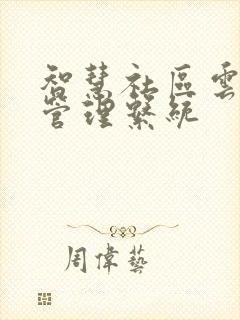 智慧社區雲
管理繫統
周偉藝